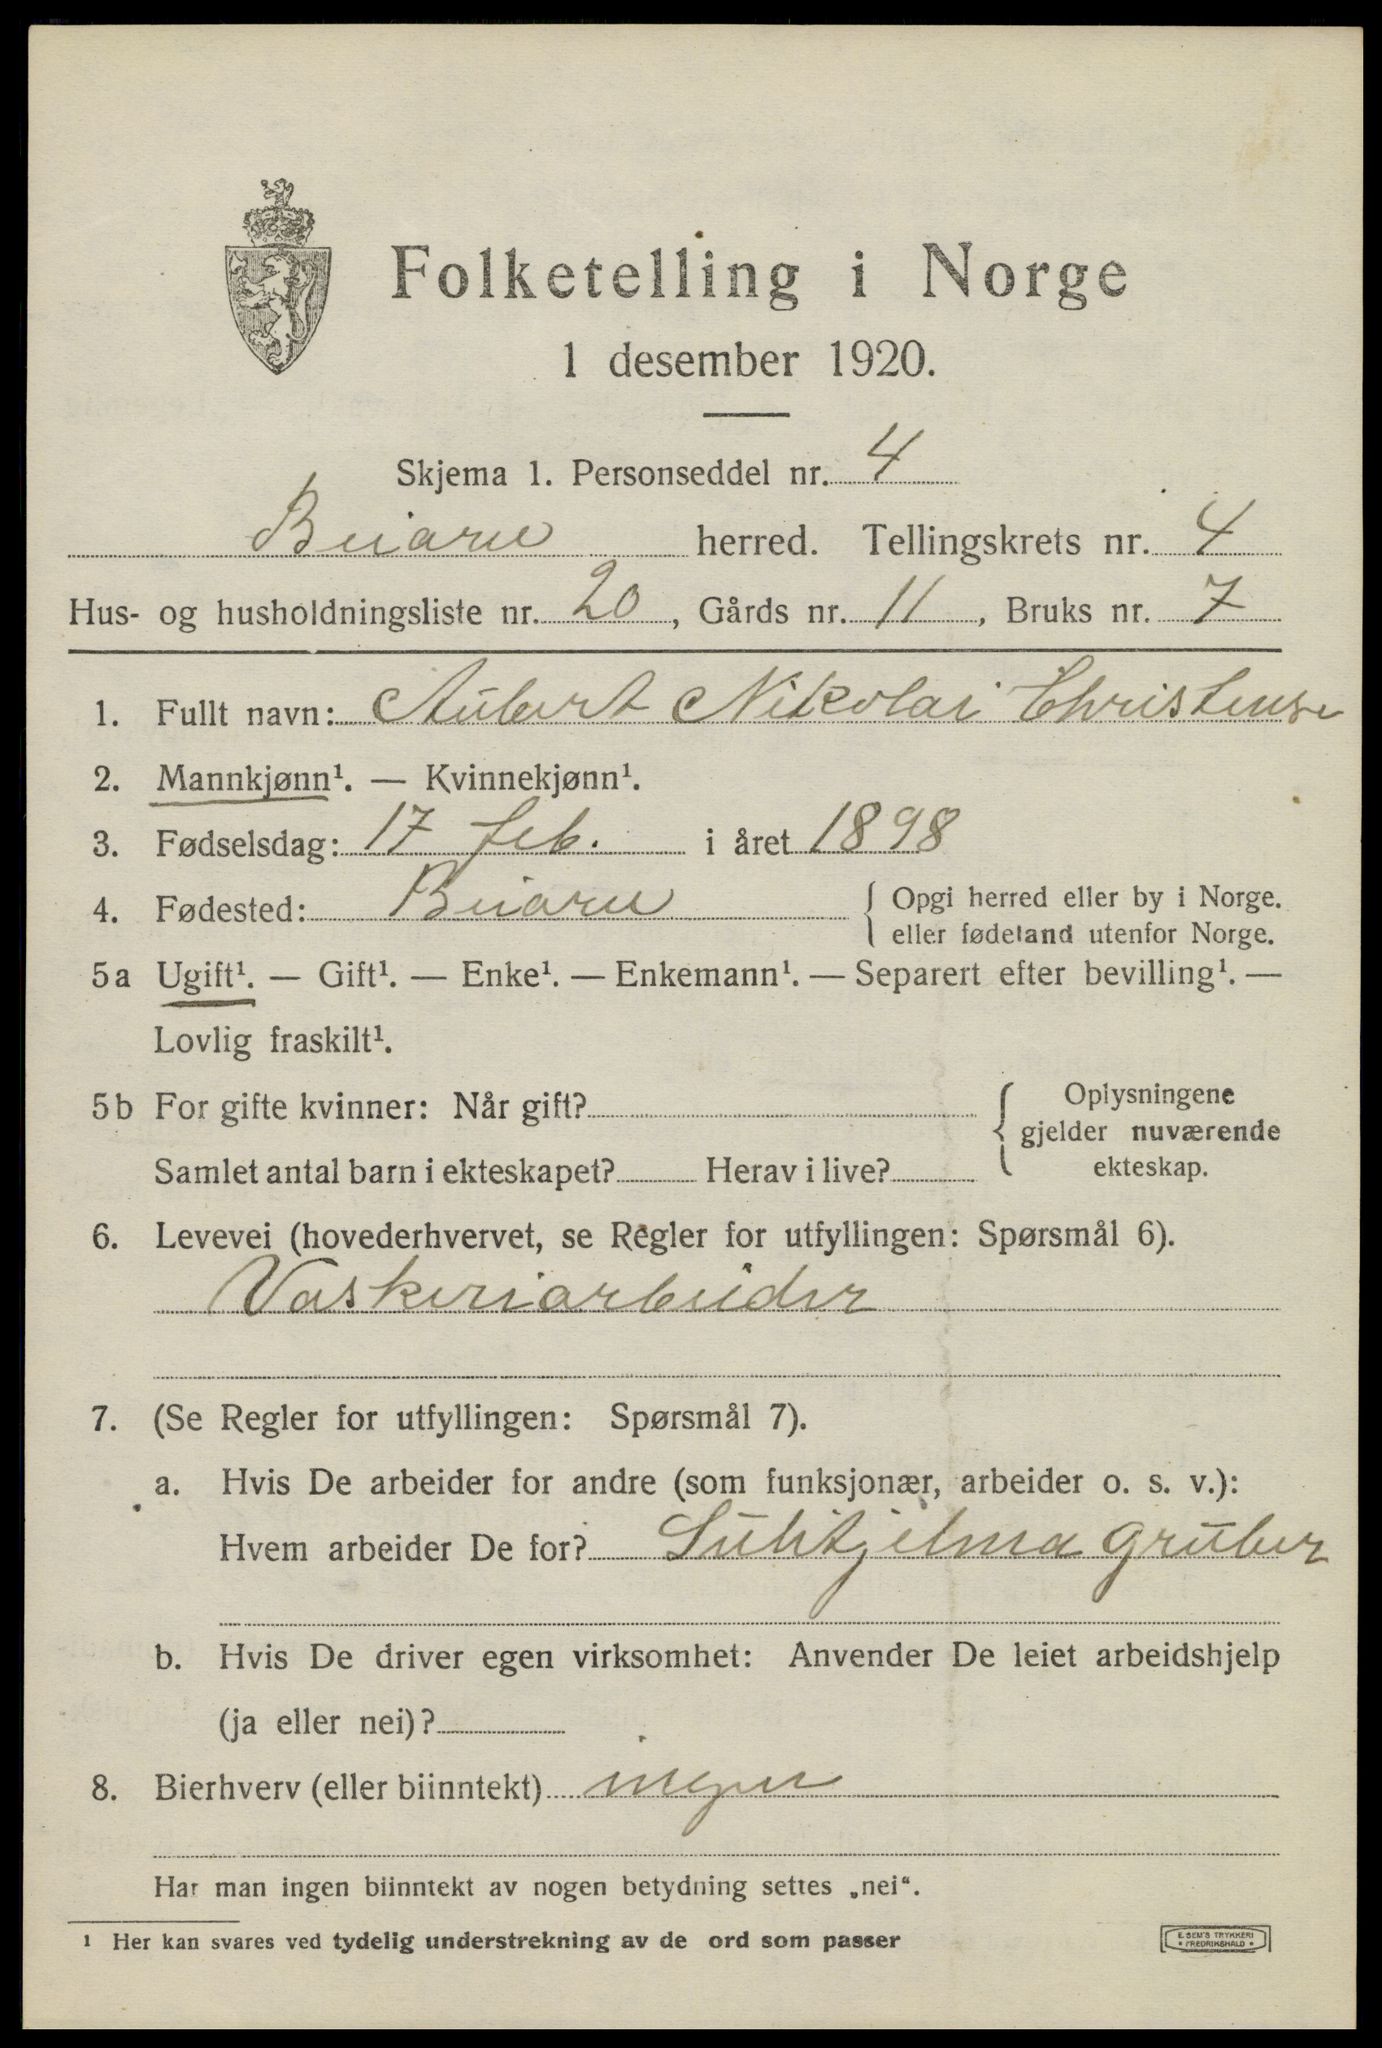 Folketelling i Norge
1 desember 1920.
Skjema 1. Personseddel nr. 4
Beiarn herred. Tellingskrets nr. 4
Hus- og husholdningsliste nr. 20, Gårds nr. 11, Bruks nr. 7
1. Fullt navn: Aubert Nikolai Christense
2. Mannkjønn¹. — Kvinnekjønn¹.
3. Fødselsdag: 17 feb. i året 1898
4. Fødested: Beiarn { Opgi herred eller by i Norge.
eller fødeland utenfor Norge.
5a Ugift¹. — Gift¹. — Enke¹. — Enkemann¹. — Separert efter bevilling¹. —
Lovlig fraskilt¹.
5b For gifte kvinner: Når gift? { Oplysningene
gjelder nuværende
Samlet antal barn i ekteskapet? Herav i live? ekteskap.
6. Levevei (hovederhvervet, se Regler for utfyllingen: Spørsmål 6).
Vaskeriarbeider
7. (Se Regler for utfyllingen: Spørsmål 7).
a. Hvis De arbeider for andre (som funksjonær, arbeider o. s. v.):
Hvem arbeider De for? Sulitjelma gruber
b. Hvis De driver egen virksomhet: Anvender De leiet arbeidshjelp
(ja eller nei)?
8. Bierhverv (eller biinntekt) ingen
Har man ingen biinntekt av nogen betydning settes „nei“.
¹ Her kan svares ved tydelig understrekning av de ord som passer
E. SEM'S TRYKKERI
• FREDRIKSHALD •